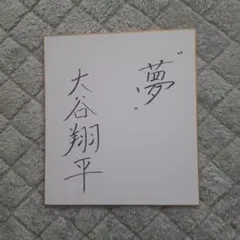 “夢”
大谷翔平